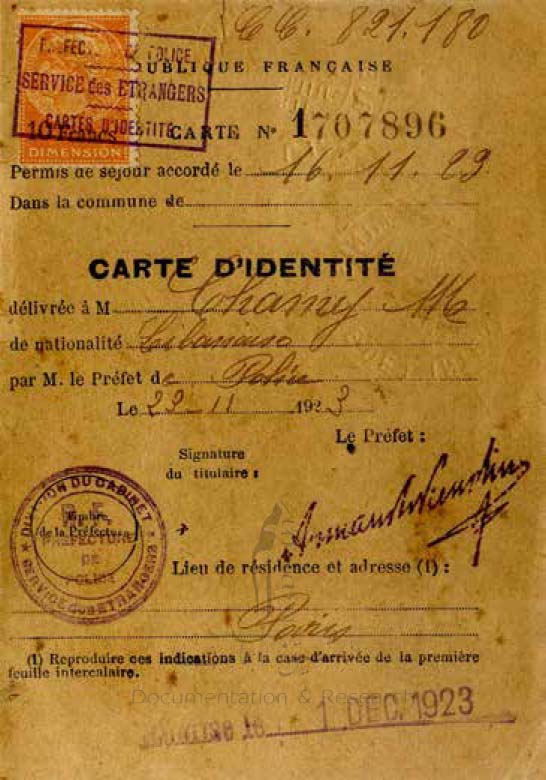 CC. 821.180
PRÉFECTURE DE POLICE
SERVICE des ETRANGERS
CARTES D'IDENTITÉ
10 Francs
DIMENSION
RÉPUBLIQUE FRANÇAISE
CARTE N° 1707896
Permis de séjour accordé le 16. 11. 23
Dans la commune de
CARTE D'IDENTITÉ
délivrée à M
de nationalité Libanaise
par M. le Préfet de Police
Le 29-11 1923
Le Préfet :
Signature
du titulaire :
DIVISION DU CABINET
R.F.
Timbre
de la Préfecture
PREFECTURE
DE
POLICE
SERVICE des ETRANGERS
Lieu de résidence et adresse (1) :
Paris
(1) Reproduire ces indications à la case d'arrivée de la première
feuille intercalaire.
Documentation & Research
1 DEC. 1923